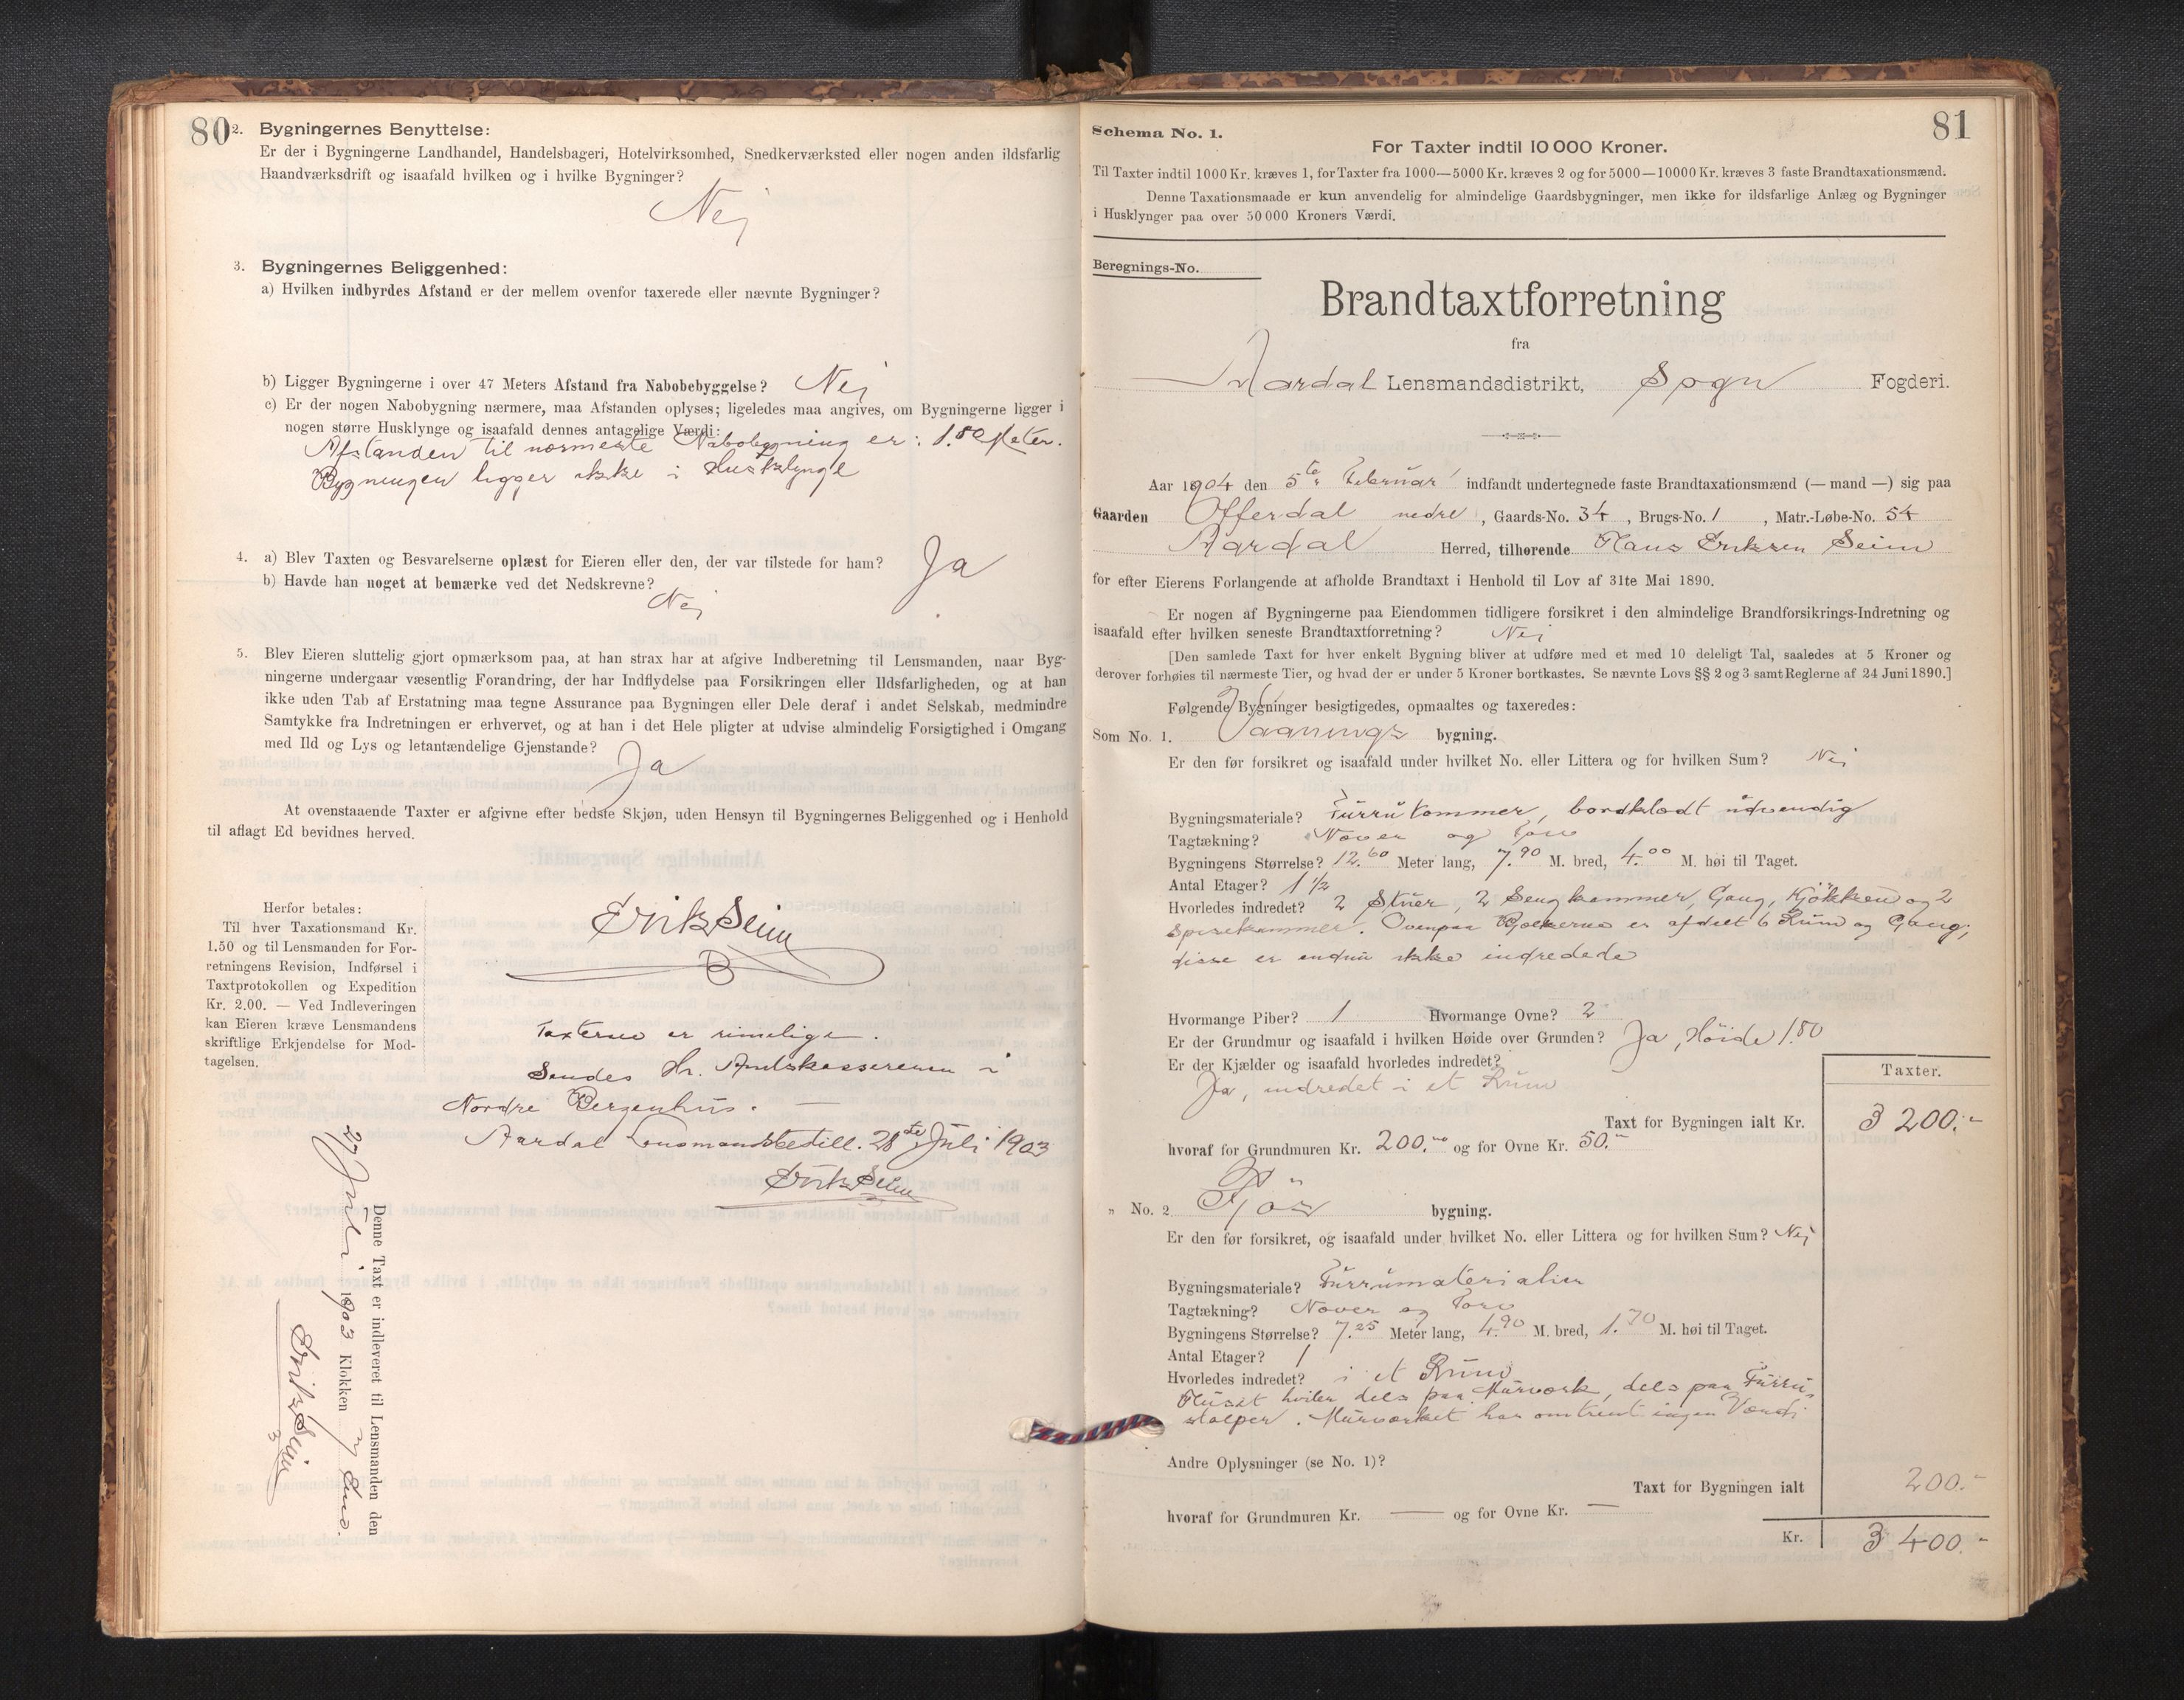 80
2. Bygningernes Benyttelse:
Er der i Bygningerne Landhandel, Handelsbageri, Hotelvirksomhed, Snedkerværksted eller nogen anden ildsfarlig
Haandværksdrift og isaafald hvilken og i hvilke Bygninger?
Nej
3. Bygningernes Beliggenhed:
a) Hvilken indbyrdes Afstand er der mellem ovenfor taxerede eller nævnte Bygninger?
b) Ligger Bygningerne i over 47 Meters Afstand fra Nabobebyggelse? Nej
c) Er der nogen Nabobygning nærmere, maa Afstanden oplyses; ligeledes maa angives, om Bygningerne ligger i
nogen større Husklynge og isaafald dennes antagelige Værdi:
Afstanden til nærmeste Nabobygning er: 1.80 Meter.
Bygningen ligger ikke i Husklynge
4. a) Blev Taxten og Besvarelserne oplæst for Eieren eller den, der var tilstede for ham? Ja
b) Havde han noget at bemærke ved det Nedskrevne?
Nej
5. Blev Eieren sluttelig gjort opmærksom paa, at han strax har at afgive Indberetning til Lensmanden, naar Byg-
ningerne undergaar væsentlig Forandring, der har Indflydelse paa Forsikringen eller Ildsfarligheden, og at han
ikke uden Tab af Erstatning maa tegne Assurance paa Bygningen eller Dele deraf i andet Selskab, medmindre
Samtykke fra Indretningen er erhvervet, og at han i det Hele pligter at udvise almindelig Forsigtighed i Omgang
med Ild og Lys og letantændelige Gjenstande?
Ja
At ovenstaaende Taxter er afgivne efter bedste Skjøn, uden Hensyn til Bygningernes Beliggenhed og i Henhold
til aflagt Ed bevidnes herved.
Herfor betales:
Til hver Taxationsmand Kr.
1.50 og til Lensmanden for For-
retningens Revision, Indførsel i
Taxtprotokollen og Expedition
Kr. 2.00. — Ved Indleveringen
kan Eieren kræve Lensmandens
skriftlige Erkjendelse for Mod-
tagelsen.
Erik Seim
Taxterne er rimelige.
Sendes Hr. Amtskassereren i
Nordre Bergenhus. —
Aardal Lensmandsbestill. 28de Juli 1903
Erik Seim
Denne Taxt er indleveret til Lensmanden den
27 Juli 1903 Klokken 7 Em.
Erik Seim
81
Schema No. 1.
For Taxter indtil 10 000 Kroner.
Til Taxter indtil 1000 Kr. kræves 1, for Taxter fra 1000—5000 Kr. kræves 2 og for 5000—10000 Kr. kræves 3 faste Brandtaxationsmænd.
Denne Taxationsmaade er kun anvendelig for almindelige Gaardsbygninger, men ikke for ildsfarlige Anlæg og Bygninger
i Husklynger paa over 50 000 Kroners Værdi.
Beregnings-No.
Brandtaxtforretning
fra
Aardal Lensmandsdistrikt, Sogn Fogderi.
Aar 1904 den 5te Februar indfandt undertegnede faste Brandtaxationsmænd (— mand —) sig paa
Gaarden Offerdal nedre, Gaards-No. 34, Brugs-No. 1, Matr.-Løbe-No. 54
Aardal Herred, tilhørende Hans Eriksen Seim
for efter Eierens Forlangende at afholde Brandtaxt i Henhold til Lov af 31te Mai 1890.
Er nogen af Bygningerne paa Eiendommen tidligere forsikret i den almindelige Brandforsikrings-Indretning og
isaafald efter hvilken seneste Brandtaxtforretning? Nej
[Den samlede Taxt for hver enkelt Bygning bliver at udføre med et med 10 deleligt Tal, saaledes at 5 Kroner og
derover forhøies til nærmeste Tier, og hvad der er under 5 Kroner bortkastes. Se nævnte Lovs §§ 2 og 3 samt Reglerne af 24 Juni 1890.]
Følgende Bygninger besigtigedes, opmaaltes og taxeredes:
Som No. 1. Vaanings bygning.
Er den før forsikret og isaafald under hvilket No. eller Littera og for hvilken Sum? Nej
Bygningsmateriale? Furru Tømmer, bordklædt udvendig
Tagtækning? Næver og Torv
Bygningens Størrelse? 12.60 Meter lang, 7.90 M. bred, 4.00 M. høi til Taget.
Antal Etager? 1 1/2
Hvorledes indredet? 2 Stuer, 2 Sengkammer, Gang, Kjøkken og 2
Spisekammer. Ovenpaa Bjælkerne er afdelt 6 Rum og Gang;
disse er endnu ikke indredede
Hvormange Piber? 1 Hvormange Ovne? 2
Er der Grundmur og isaafald i hvilken Høide over Grunden? Ja, Høide 1.80
Er der Kjælder og isaafald hvorledes indredet?
Ja, indredet i et Rum
Taxter.
Taxt for Bygningen ialt Kr. 3 200.-
hvoraf for Grundmuren Kr. 200.- og for Ovne Kr. 50.-
„ No. 2 Fjøs bygning.
Er den før forsikret, og isaafald under hvilket No. eller Littera og for hvilken Sum? Nej
Bygningsmateriale? Furrumaterialier
Tagtækning? Næver og Torv
Bygningens Størrelse? 7.25 Meter lang, 4.90 M. bred, 1.70 M. høi til Taget.
Antal Etager? 1
Hvorledes indredet? i et Rum
Huset hviler dels paa Murværk, dels paa Furru-
stolper. Murværket har omtrent ingen Værdi
Andre Oplysninger (se No. 1)?
Taxt for Bygningen ialt 200.-
hvoraf for Grundmuren Kr. — og for Ovne Kr. —
Kr. 3 400.-